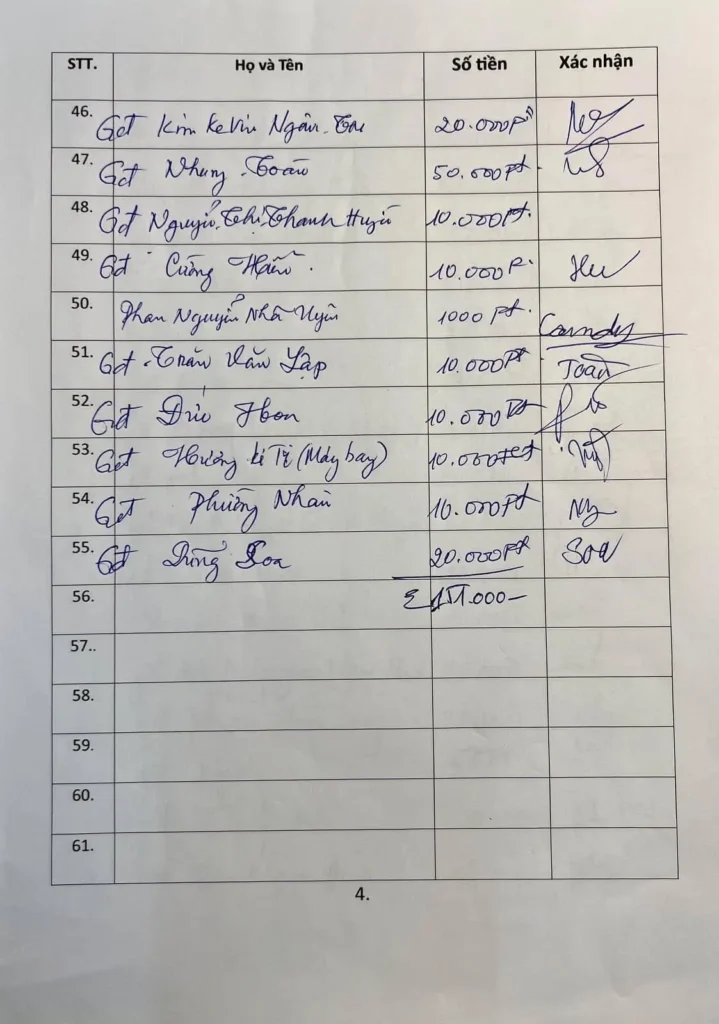 STT. Họ và Tên Số tiền Xác nhận
46. Gđ Kim Kevin Ngân 20.000Ft
47. Gđ Nhung Toàn 50.000Ft
48. Gđ Nguyễn Thị Thanh Huyền 10.000Ft.
49. Gđ Cường Hiền 10.000F.
50. Phan Nguyễn Nhã Uyên 1000 Ft. Candy
51. Gđ Trần Văn Lập 10.000Ft Toàn
52. Gđ Đức Hoa 10.000Ft
53. Gđ Hương kí Tị (Máy bay) 10.000Ft
54. Gđ Phường Nhàn 10.000Ft
55. Gđ Dũng Soa 20.000Ft Soa
56. Σ 151.000-
57..
58.
59.
60.
61.
4.